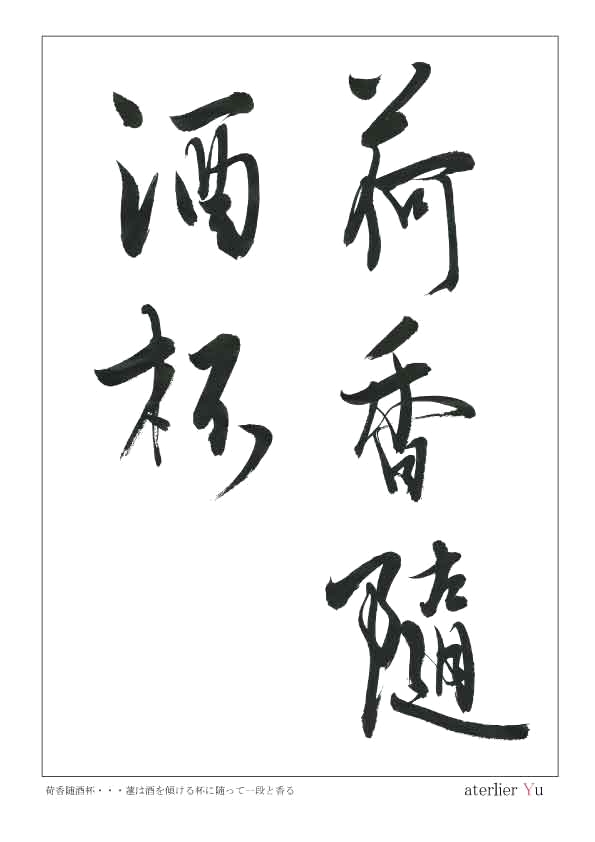 荷香隨
酒杯
荷香随酒杯・・・蓮は酒を傾ける杯に随って一段と香る
aterlier Yu